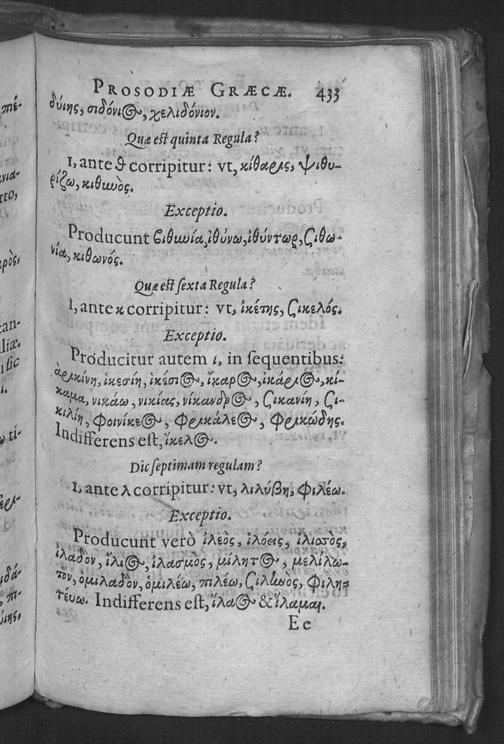 PROSODIÆ GRÆCÆ. 433
δύιης, σιδόνιος, χελιδόνιον.
Quæ est quinta Regula?
ι, ante θ corripitur: vt, κίθαρις, ψιθυ-
ρίζω, κιθινος.
Exceptio.
Producunt βιθινία, ἰθύνω, ἰθύντωρ, Σιθω-
νία, κιθωνός.
Quæ est sexta Regula?
ι, ante κ corripitur: vt, ἱκέτης, Σικελός.
Exceptio.
Producitur autem ι, in sequentibus:
ἀρικίνη, ἱκεσίη, ἱκέσιος, ἵκαρος, ἰκάριος, κί-
καμα, νικάω, νικίας, νίκανδρος, Σικανίη, Σι-
κιλίη, φοινίκεος, φρικάλεος, φρικώδης.
Indifferens est, ἴκελος.
Dic septimam regulam?
ι, ante λ corripitur: vt, λιλύβη, φιλέω.
Exceptio.
Producunt verò ἰλεὸς, ἰλόεις, ἰλιατὸς,
ἰλαδὸν, ἴλιος, ἱλασμὸς, μίλητος, μελίλω-
τον, ὁμιλαδὸν, ὁμιλέω, πιλέω, Σιλινὸς, φιλη-
τεύω. Indifferens est, ἵλαος & ἵλαμαι.
Ee